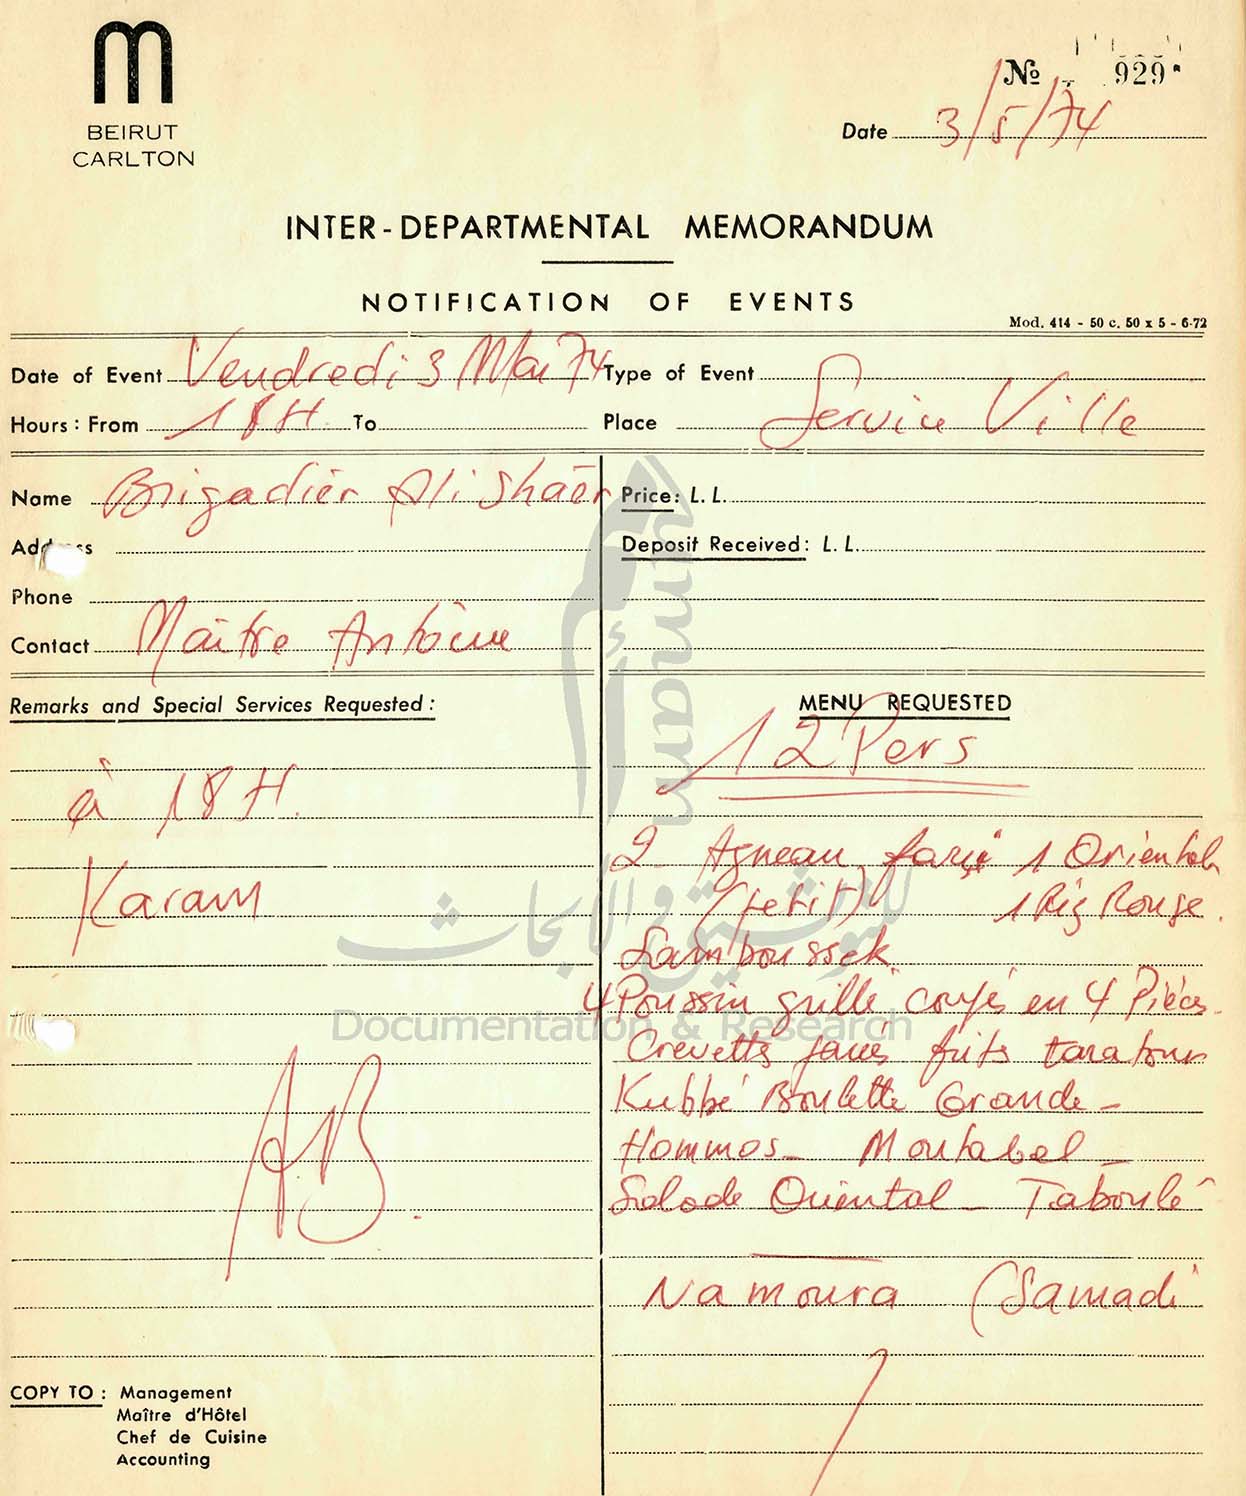 BEIRUT
CARLTON
No 929
Date 3/5/74
INTER-DEPARTMENTAL MEMORANDUM
NOTIFICATION OF EVENTS
Mod. 414 - 50 c. 50 x 5 - 6-72
Date of Event Vendredi 3 Mai 74 Type of Event
Hours: From 18H. To Place Service Ville
Name Brigadier Ali Shaër Price: L. L.
Address Deposit Received: L. L.
Phone
Contact Maître Antoine
Remarks and Special Services Requested: MENU REQUESTED
12 Pers
à 18H.
2 Agneau farçi 1 Oriental
Karam
(petit) 1 Riz Rouge.
Samboussek
4 Poussin grillé coupés en 4 Pièces.
Crevettes panés frits taratour
Kubbé Boulette Grande -
Hommos - Moutabal -
Salade Oriental - Taboulé
AB.
Namoura (Samadi
COPY TO: Management
Maître d'Hôtel
Chef de Cuisine
Accounting
أمم
umam
للتوثيق و الأبحاث
Documentation & Research